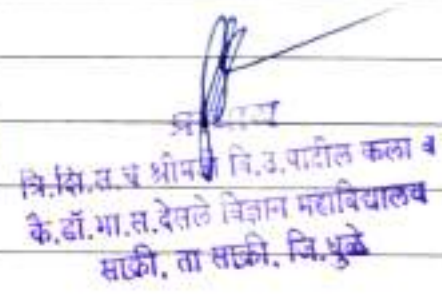 प्राचार्य
वि.वि.त.चे श्रीमती वि.उ.पाटील कला व
कै.डॉ.भा.त.देसले विज्ञान महाविद्यालय
साक्री, ता साक्री, जि.धुळे